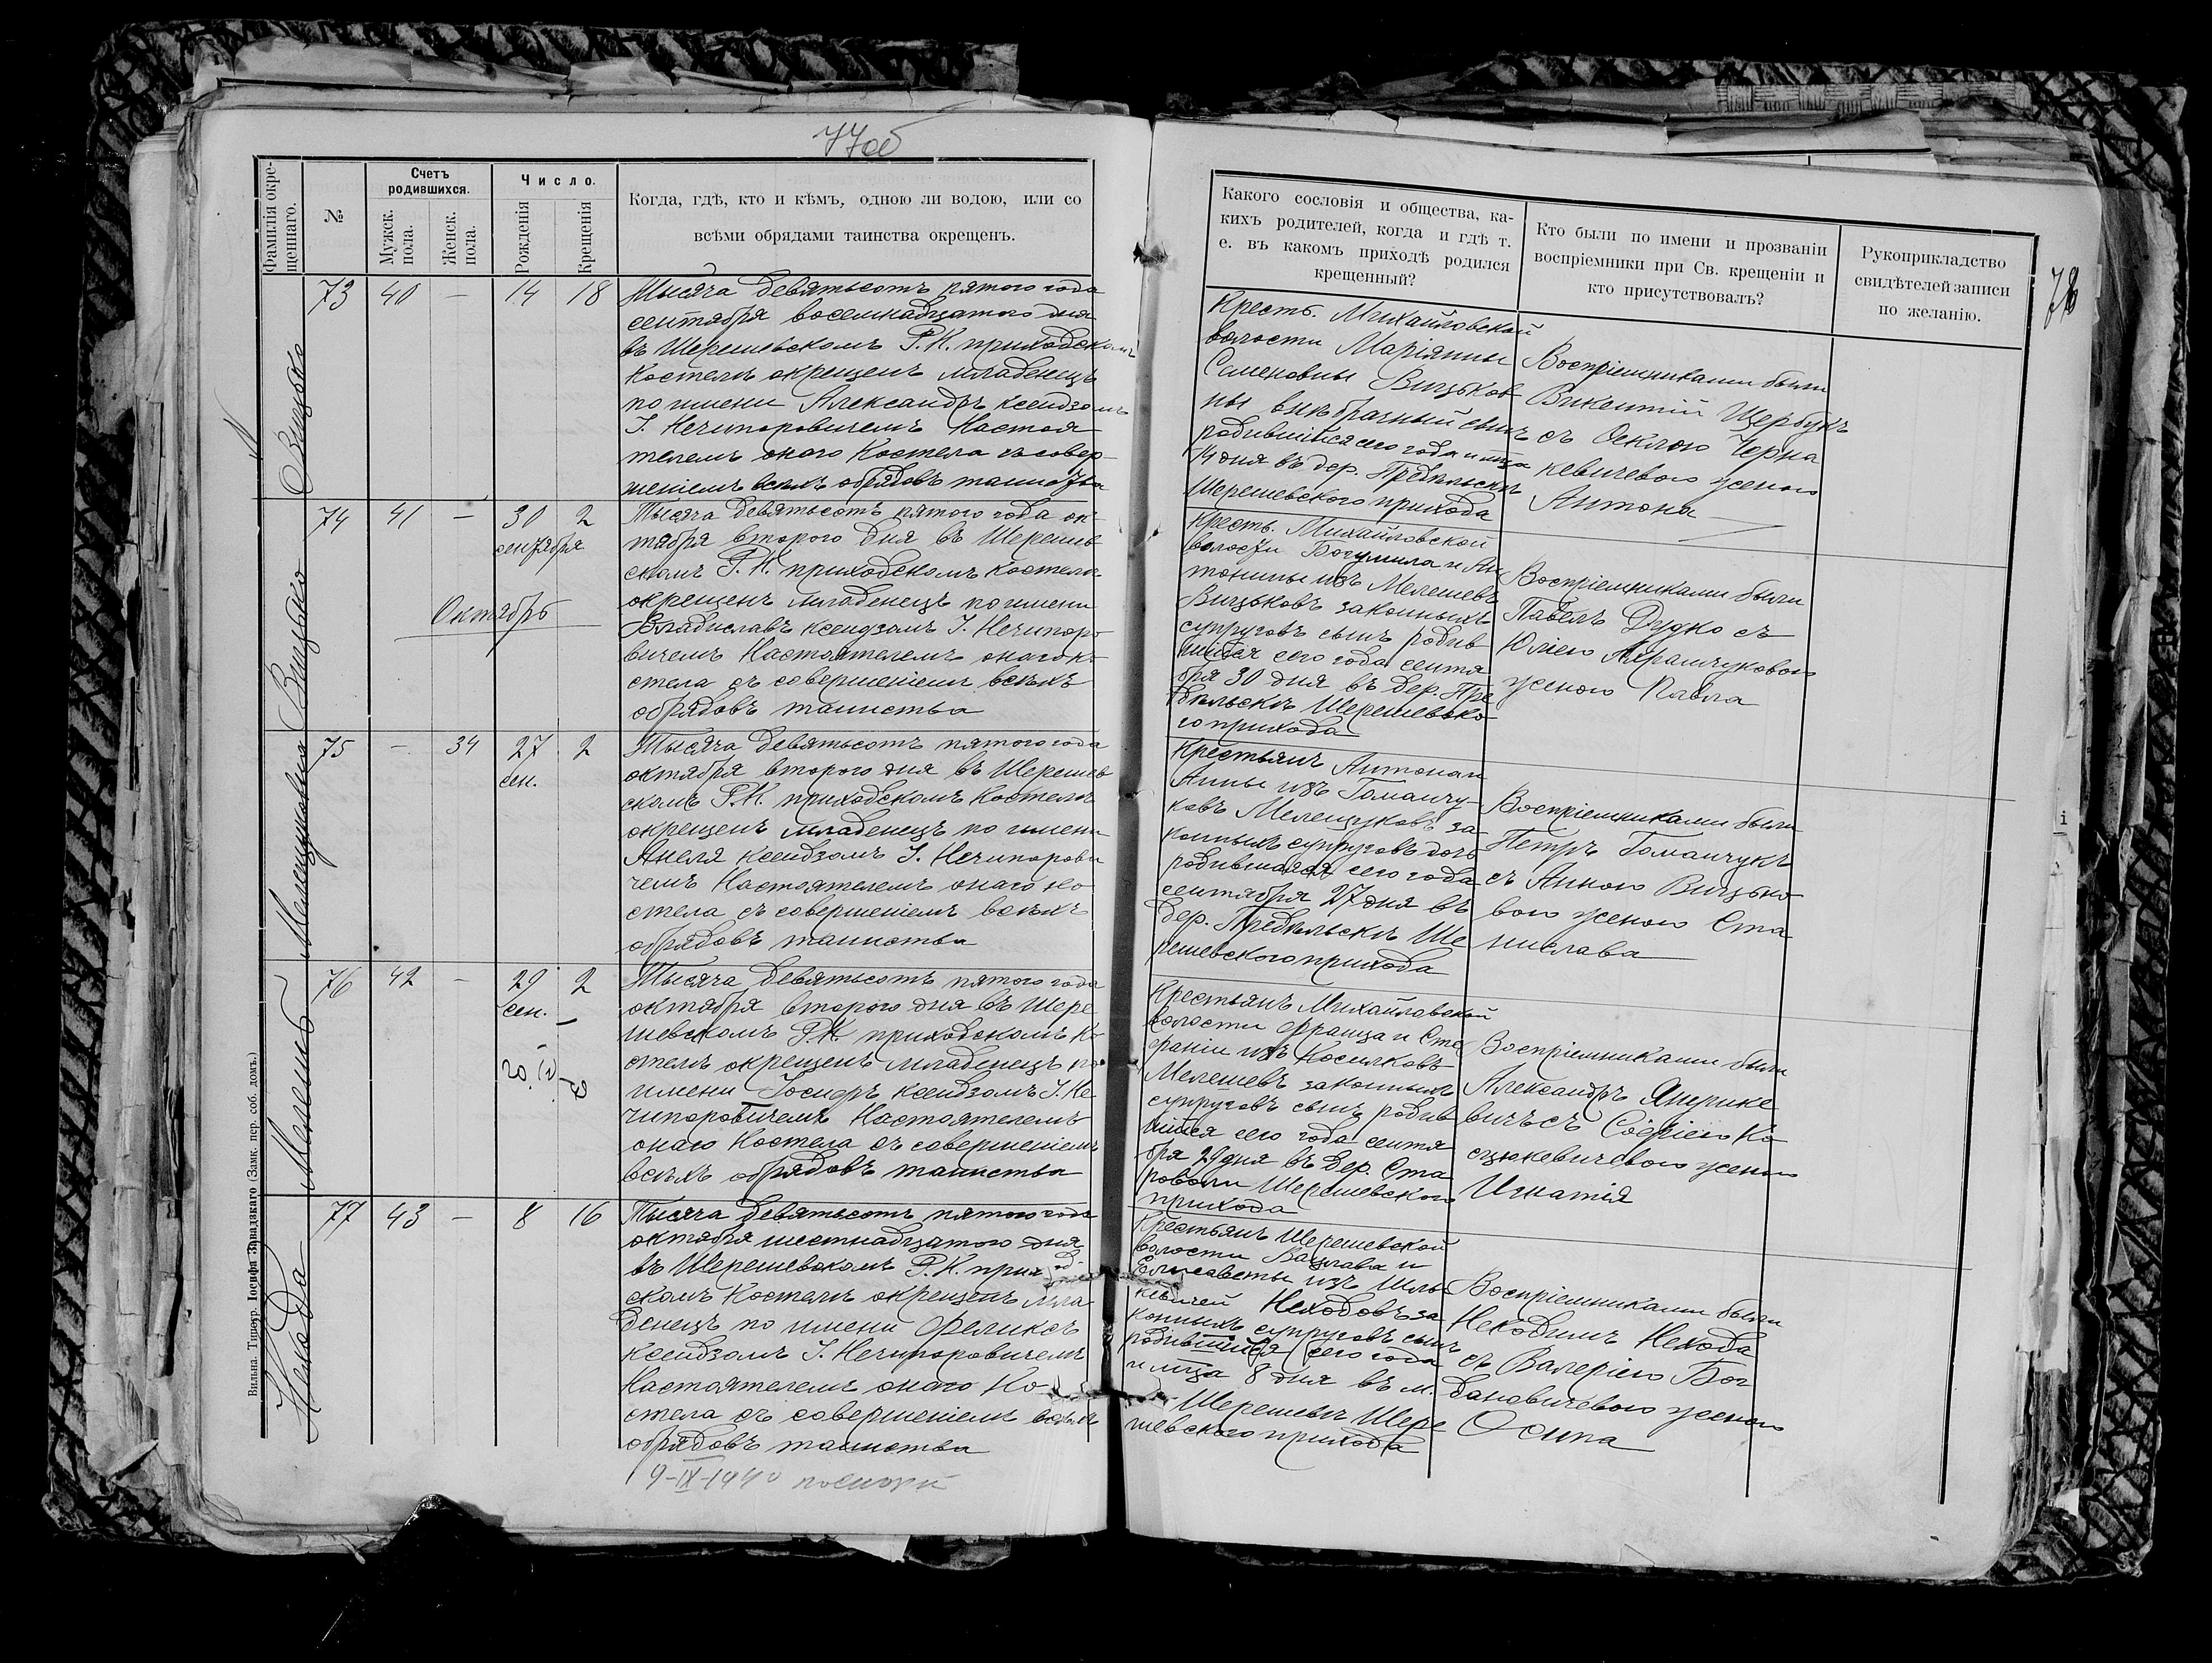 77об
Фамилія окре-
щеннаго.
№
Счетъ
родившихся.
Мужск.
пола.
Женск.
пола.
Число.
Рожденія
Крещенія
Когда, гдѣ, кто и кѣмъ, одною ли водою, или со
всѣми обрядами таинства окрещенъ.
Вицько
73 40 — 14 18
Тысяча девятьсотъ пятого года
сентября восемнадцатого дня
въ Шерешевскомъ Р.К. приходскомъ
Костелѣ окрещенъ младенецъ
по имени Александръ ксендзомъ
І. Нечипоровичемъ Настоя
телемъ оного Костела съ совер-
шеніемъ всѣхъ обрядовъ таинства
Вицько
74 41 — 30 2
сентября
Октябрь
Тысяча девятьсотъ пятого года ок-
тября второго дня въ Шерешев
скомъ Р.К. приходскомъ костелѣ
окрещенъ младенецъ по имени
Владиславъ ксендзомъ І. Нечипоро
вичемъ Настоятелемъ онаго ко
стела съ совершеніемъ всѣхъ
обрядовъ таинства
Мелещуковна
75 — 34 27 2
сен.
Тысяча девятьсотъ пятого года
октября второго дня въ Шерешев
скомъ Р.К. приходскомъ Костелѣ
окрещенъ младенецъ по имени
Анеля ксендзомъ І. Нечипорови
чемъ Настоятелемъ онаго ко
стела съ совершеніемъ всѣхъ
обрядовъ таинства
Мелешъ
76 42 — 29 2
сен.
Тысяча девятьсотъ пятого года
октября второго дня въ Шере
шевскомъ Р.К. приходскомъ Ко
стелѣ окрещенъ младенецъ по
имени Іосифъ ксендзомъ І. Не
чипоровичемъ Настоятелемъ
онаго Костела съ совершеніемъ
всѣхъ обрядовъ таинства
Нехода
77 43 — 8 16
Тысяча девятьсотъ пятого года
октября шестнадцатого дня
въ Шерешевскомъ Р.К. приход-
скомъ Костелѣ окрещенъ мла
денецъ по имени Феликсъ
ксендзомъ І. Нечипоровичемъ
Настоятелемъ онаго Ко-
стела съ совершеніемъ всѣхъ
обрядовъ таинства
9-IX-1940
Вильна. Типогр. Іосифа Завадзкаго (Замк. пер. соб. домъ.)
78
Какого сословія и общества, ка-
кихъ родителей, когда и гдѣ т.
е. въ какомъ приходѣ родился
крещенный?
Кто были по имени и прозваніи
воспріемники при Св. крещеніи и
кто присутствовалъ?
Рукоприкладство
свидѣтелей записи
по желанію.
Кресть. Михайловской
волости Маріянны
Семеновны Вицьков
ны внѣбрачный сынъ
родившійся сего года и мца
14 дня въ дер. Предѣльскъ
Шерешевского прихода
Воспріемниками были
Викентій Щербукъ
съ Феклою Черна
кевичевою женою
Антона
Кресть. Михайловской
волости Богумила и Ан
тонины изъ Мелешевъ
Вицьковъ законныхъ
супруговъ сынъ родив-
шійся сего года сентя
бря 30 дня въ дер. Пре
дѣльскъ Шерешевско
го прихода
Воспріемниками были
Павелъ Дудко съ
Юліею Абрамчуковою
женою Павла
Крестьянъ Антона и
Анны изъ Гоманчу-
ковъ Мелещуковъ за
конныхъ супруговъ дочь
родившаяся сего года
сентября 27 дня въ
дер. Предѣльскъ Ше
решевского прихода
Воспріемниками были
Петръ Гоманчукъ
съ Анною Вицько
вою женою Ста
нислава
Крестьянъ Михайловской
волости Франца и Сте
фаніи изъ Косилковъ
Мелешевъ законныхъ
супруговъ сынъ родив
шійся сего года сентя
бря 29 дня въ дер. Ста
роволи Шерешевского
прихода
Воспріемниками были
Александръ
вичъ съ Софіею Ко
сцюкевичевою женою
Игнатія
Крестьянъ Шерешевской
волости Вацлава и
Елисаветы изъ Шиль
кевичей Неходовъ за
конныхъ супруговъ сынъ
родившійся сего года
и мца 8 дня въ м.
Шерешевъ Шере
шевского прихода
Воспріемниками были
Некодимъ Нехода
съ Валеріею Бог
дановичевою женою
Осипа